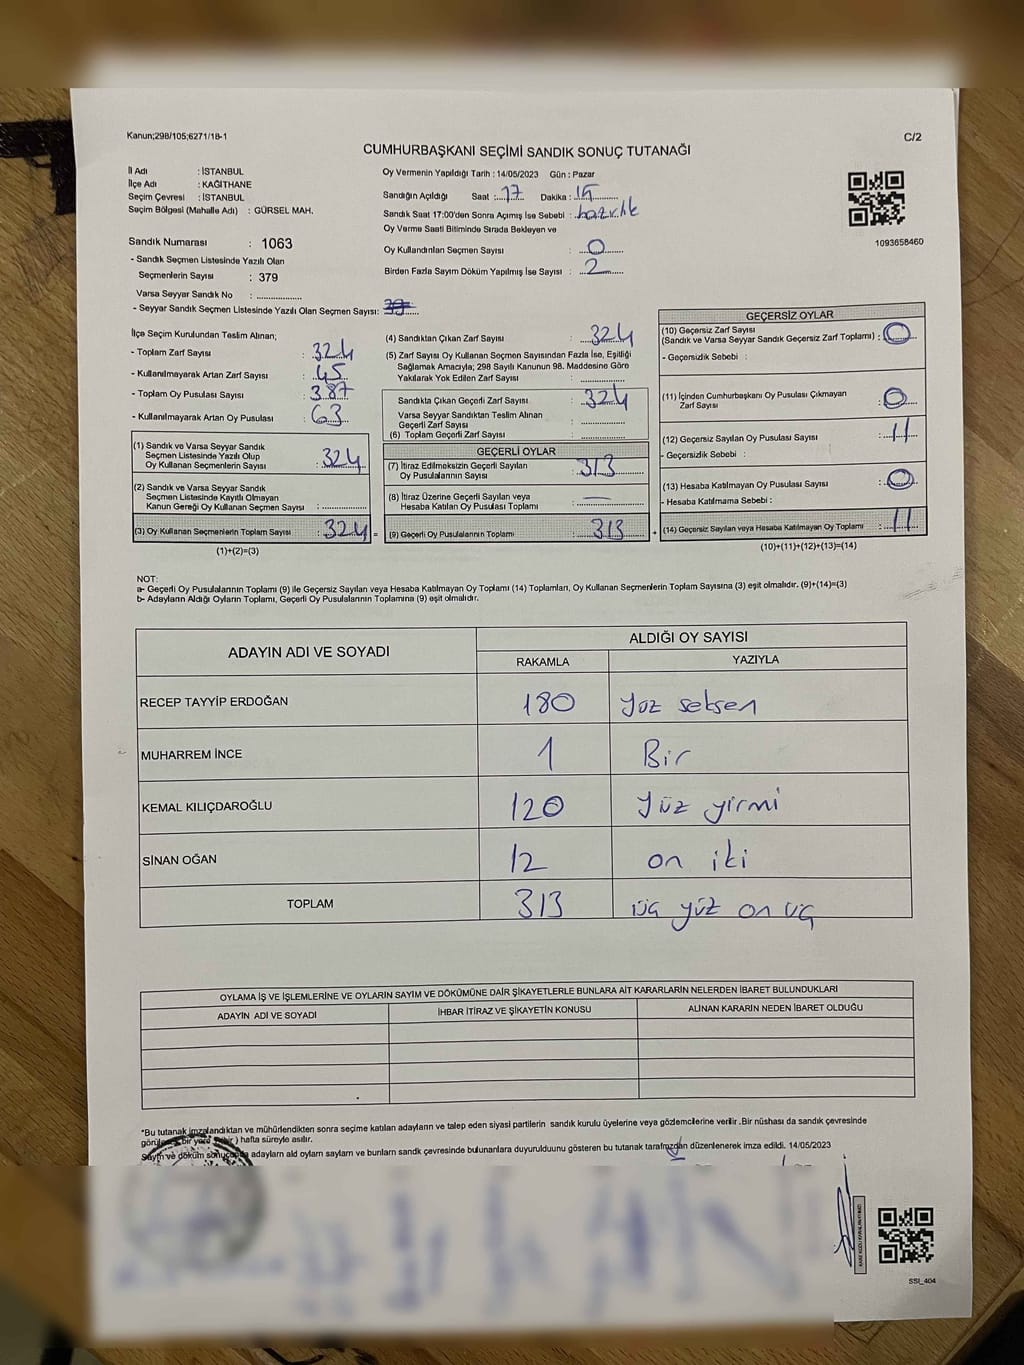 Kanun;298/105;6271/18-1
C/2
CUMHURBAŞKANI SEÇİMİ SANDIK SONUÇ TUTANAĞI
İl Adı : İSTANBUL
İlçe Adı : KAĞITHANE
Seçim Çevresi : İSTANBUL
Seçim Bölgesi (Mahalle Adı) : GÜRSEL MAH.
Sandık Numarası : 1063
- Sandık Seçmen Listesinde Yazılı Olan
Seçmenlerin Sayısı : 379
Varsa Seyyar Sandık No : ..................
- Seyyar Sandık Seçmen Listesinde Yazılı Olan Seçmen Sayısı:
Oy Vermenin Yapıldığı Tarih : 14/05/2023 Gün : Pazar
Sandığın Açıldığı Saat : 17 Dakika : 15
Sandık Saat 17:00'den Sonra Açımış İse Sebebi : hazırlık
Oy Verme Saati Bitiminde Sırada Bekleyen ve
Oy Kullandırılan Seçmen Sayısı : 0
Birden Fazla Sayım Döküm Yapılmış İse Sayısı : 2
1093658460
İlçe Seçim Kurulundan Teslim Alınan;
- Toplam Zarf Sayısı : 324
- Kullanılmayarak Artan Zarf Sayısı : 45
- Toplam Oy Pusulası Sayısı : 387
- Kullanılmayarak Artan Oy Pusulası : 63
(1) Sandık ve Varsa Seyyar Sandık
Seçmen Listesinde Yazılı Olup
Oy Kullanan Seçmenlerin Sayısı : 324
(2) Sandık ve Varsa Seyyar Sandık
Seçmen Listesinde Kayıtlı Olmayan
Kanun Gereği Oy Kullanan Seçmen Sayısı : ..............
(3) Oy Kullanan Seçmenlerin Toplam Sayısı : 324 =
(1)+(2)=(3)
(4) Sandıktan Çıkan Zarf Sayısı : 324
(5) Zarf Sayısı Oy Kullanan Seçmen Sayısından Fazla İse, Eşitliği
Sağlamak Amacıyla; 298 Sayılı Kanunun 98. Maddesine Göre
Yakılarak Yok Edilen Zarf Sayısı : ..............
Sandıkta Çıkan Geçerli Zarf Sayısı : 324
Varsa Seyyar Sandıktan Teslim Alınan
Geçerli Zarf Sayısı : ..............
(6) Toplam Geçerli Zarf Sayısı : ..............
GEÇERLİ OYLAR
(7) İtiraz Edilmeksizin Geçerli Sayılan
Oy Pusulalarının Sayısı : 313
(8) İtiraz Üzerine Geçerli Sayılan veya
Hesaba Katılan Oy Pusulası Toplamı : —
(9) Geçerli Oy Pusulalarının Toplamı : 313 +
GEÇERSİZ OYLAR
(10) Geçersiz Zarf Sayısı
(Sandık ve Varsa Seyyar Sandık Geçersiz Zarf Toplamı) : 0
- Geçersizlik Sebebi :
(11) İçinden Cumhurbaşkanı Oy Pusulası Çıkmayan
Zarf Sayısı : 0
(12) Geçersiz Sayılan Oy Pusulası Sayısı : 11
- Geçersizlik Sebebi :
(13) Hesaba Katılmayan Oy Pusulası Sayısı : 0
- Hesaba Katılmama Sebebi :
(14) Geçersiz Sayılan veya Hesaba Katılmayan Oy Toplamı : 11
(10)+(11)+(12)+(13)=(14)
NOT:
a- Geçerli Oy Pusulalarının Toplamı (9) ile Geçersiz Sayılan veya Hesaba Katılmayan Oy Toplamı (14) Toplamları, Oy Kullanan Seçmenlerin Toplam Sayısına (3) eşit olmalıdır. (9)+(14)=(3)
b- Adayların Aldığı Oyların Toplamı, Geçerli Oy Pusulalarının Toplamına (9) eşit olmalıdır.
ADAYIN ADI VE SOYADI
ALDIĞI OY SAYISI
RAKAMLA YAZIYLA
RECEP TAYYİP ERDOĞAN 180 yüz seksen
MUHARREM İNCE 1 Bir
KEMAL KILIÇDAROĞLU 120 yüz yirmi
SİNAN OĞAN 12 on iki
TOPLAM 313 üç yüz on üç
OYLAMA İŞ VE İŞLEMLERİNE VE OYLARIN SAYIM VE DÖKÜMÜNE DAİR ŞİKAYETLERLE BUNLARA AİT KARARLARIN NELERDEN İBARET BULUNDUKLARI
ADAYIN ADI VE SOYADI İHBAR İTİRAZ VE ŞİKAYETİN KONUSU ALINAN KARARIN NEDEN İBARET OLDUĞU
*Bu tutanak imzalandıktan ve mühürlendikten sonra seçime katılan adayların ve talep eden siyasi partilerin sandık kurulu üyelerine veya gözlemcilerine verilir. Bir nüshası da sandık çevresinde
bir yere hafta süreyle asılır.
Sayım ve döküm sonucunda adayların ald oyların sayların ve bunların sandık çevresinde bulunanlara duyurulduunu gösteren bu tutanak tarafımızdan düzenlenerek imza edildi. 14/05/2023
SSI_404